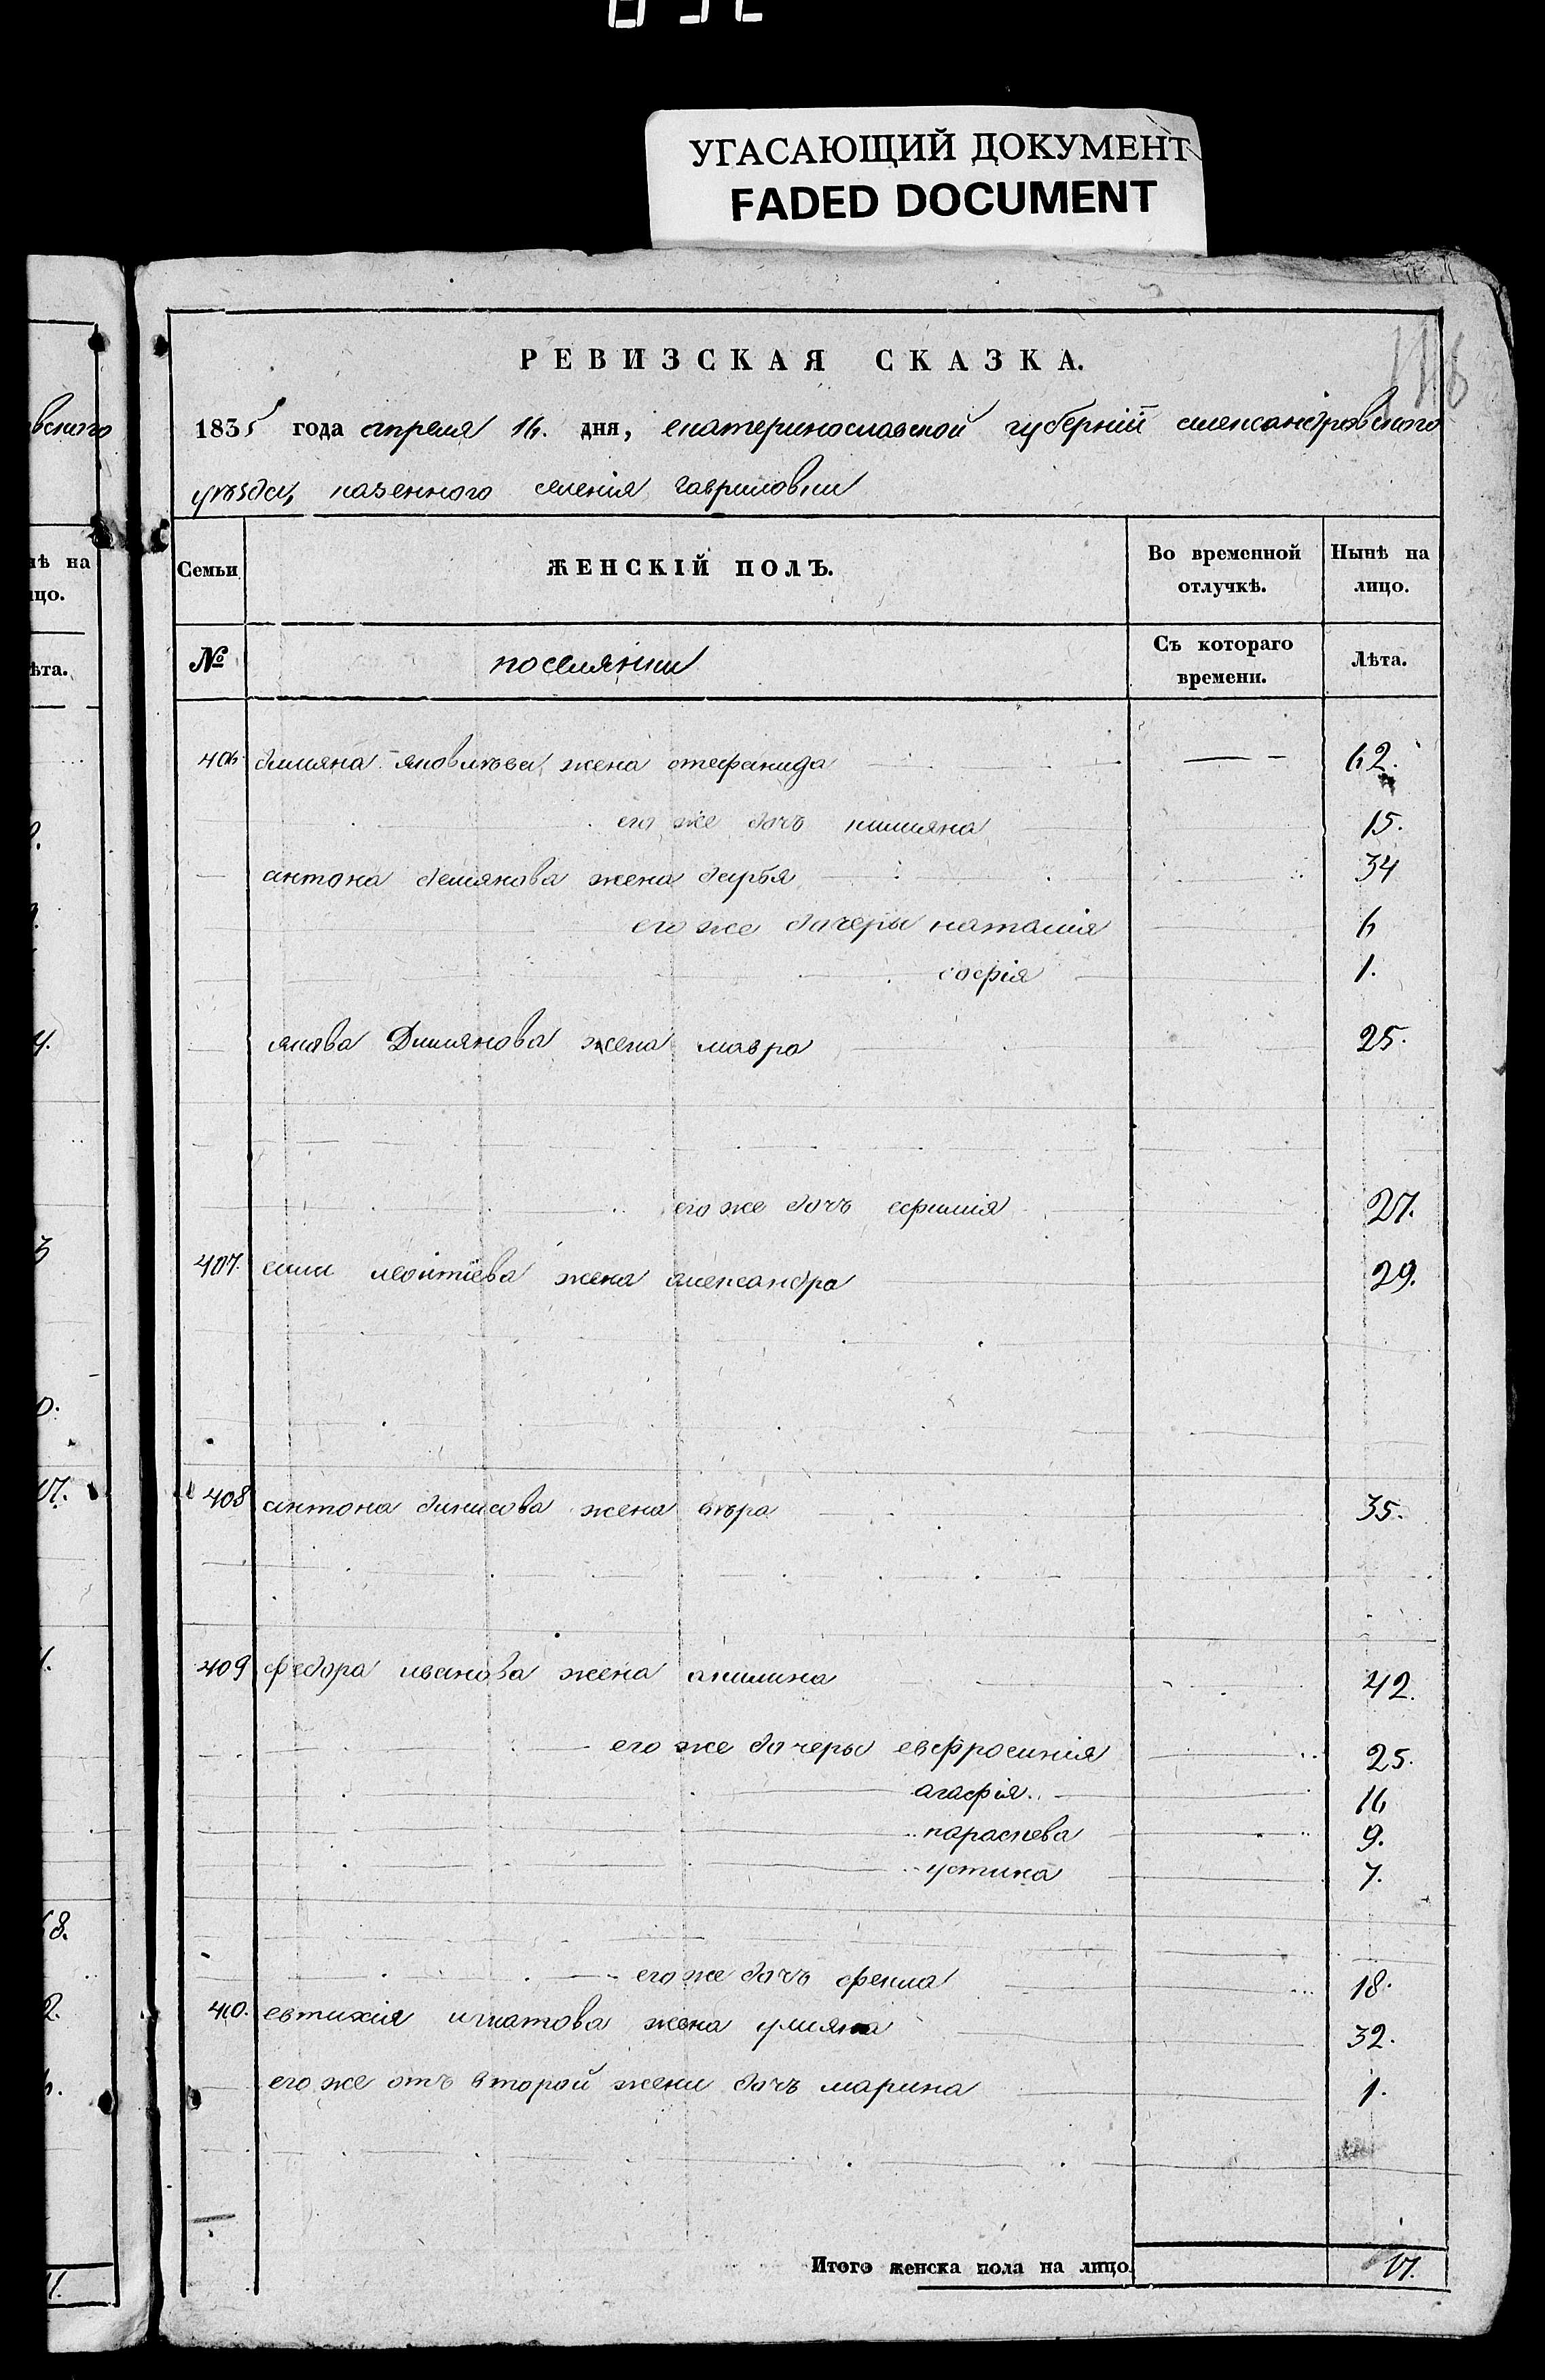 УГАСАЮЩИЙ ДОКУМЕНТ
FADED DOCUMENT
116
РЕВИЗСКАЯ СКАЗКА.
1835 года апреля 16. дня, екатеринославской губерніи александровского
уѣзда, казенного селенія гавриловки
Семьи ЖЕНСКІЙ ПОЛЪ. Во временной отлучкѣ. Нынѣ на лицо.
№ поселянки Съ котораго времени. Лѣта.
406 яковлѣва жена стефанида 62.
его же дочъ 15.
антона демянова жена дарья 34
его же дочеры наталія 6
софія 1.
якова Димянова жена мавра 25.
его же дочъ ефимія 27.
407. леонтіева жена александра 29.
408 антона динисова жена вѣра 35.
409 федора иванова жена акилина 42.
его же дочеры евфросинія 25.
агафія 16
параскева 9.
устина 7.
его же дочъ фекла 18.
410. евтихія игнатова жена улияна 32.
его же отъ второй жени дочъ марина 1.
Итого женска пола на лицо. 17.